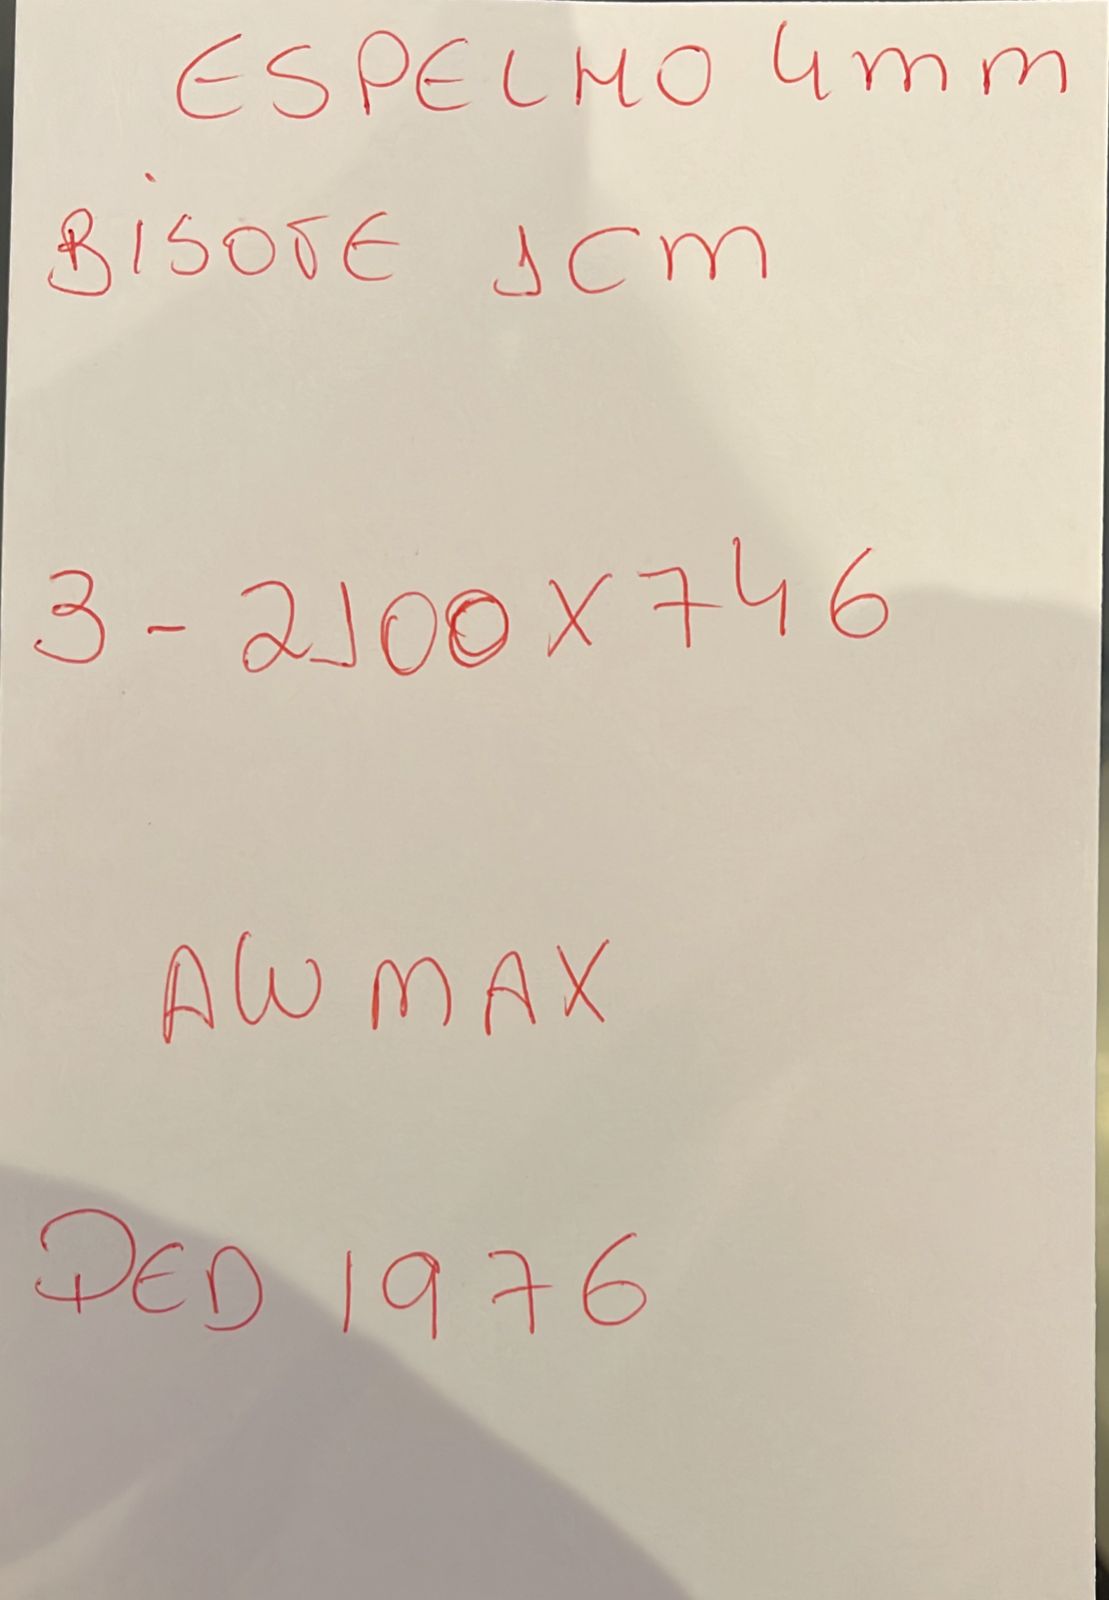 ESPELHO 4mm
BISOTE 1cm
3 - 2100 x 746
AW MAX
PED 1976